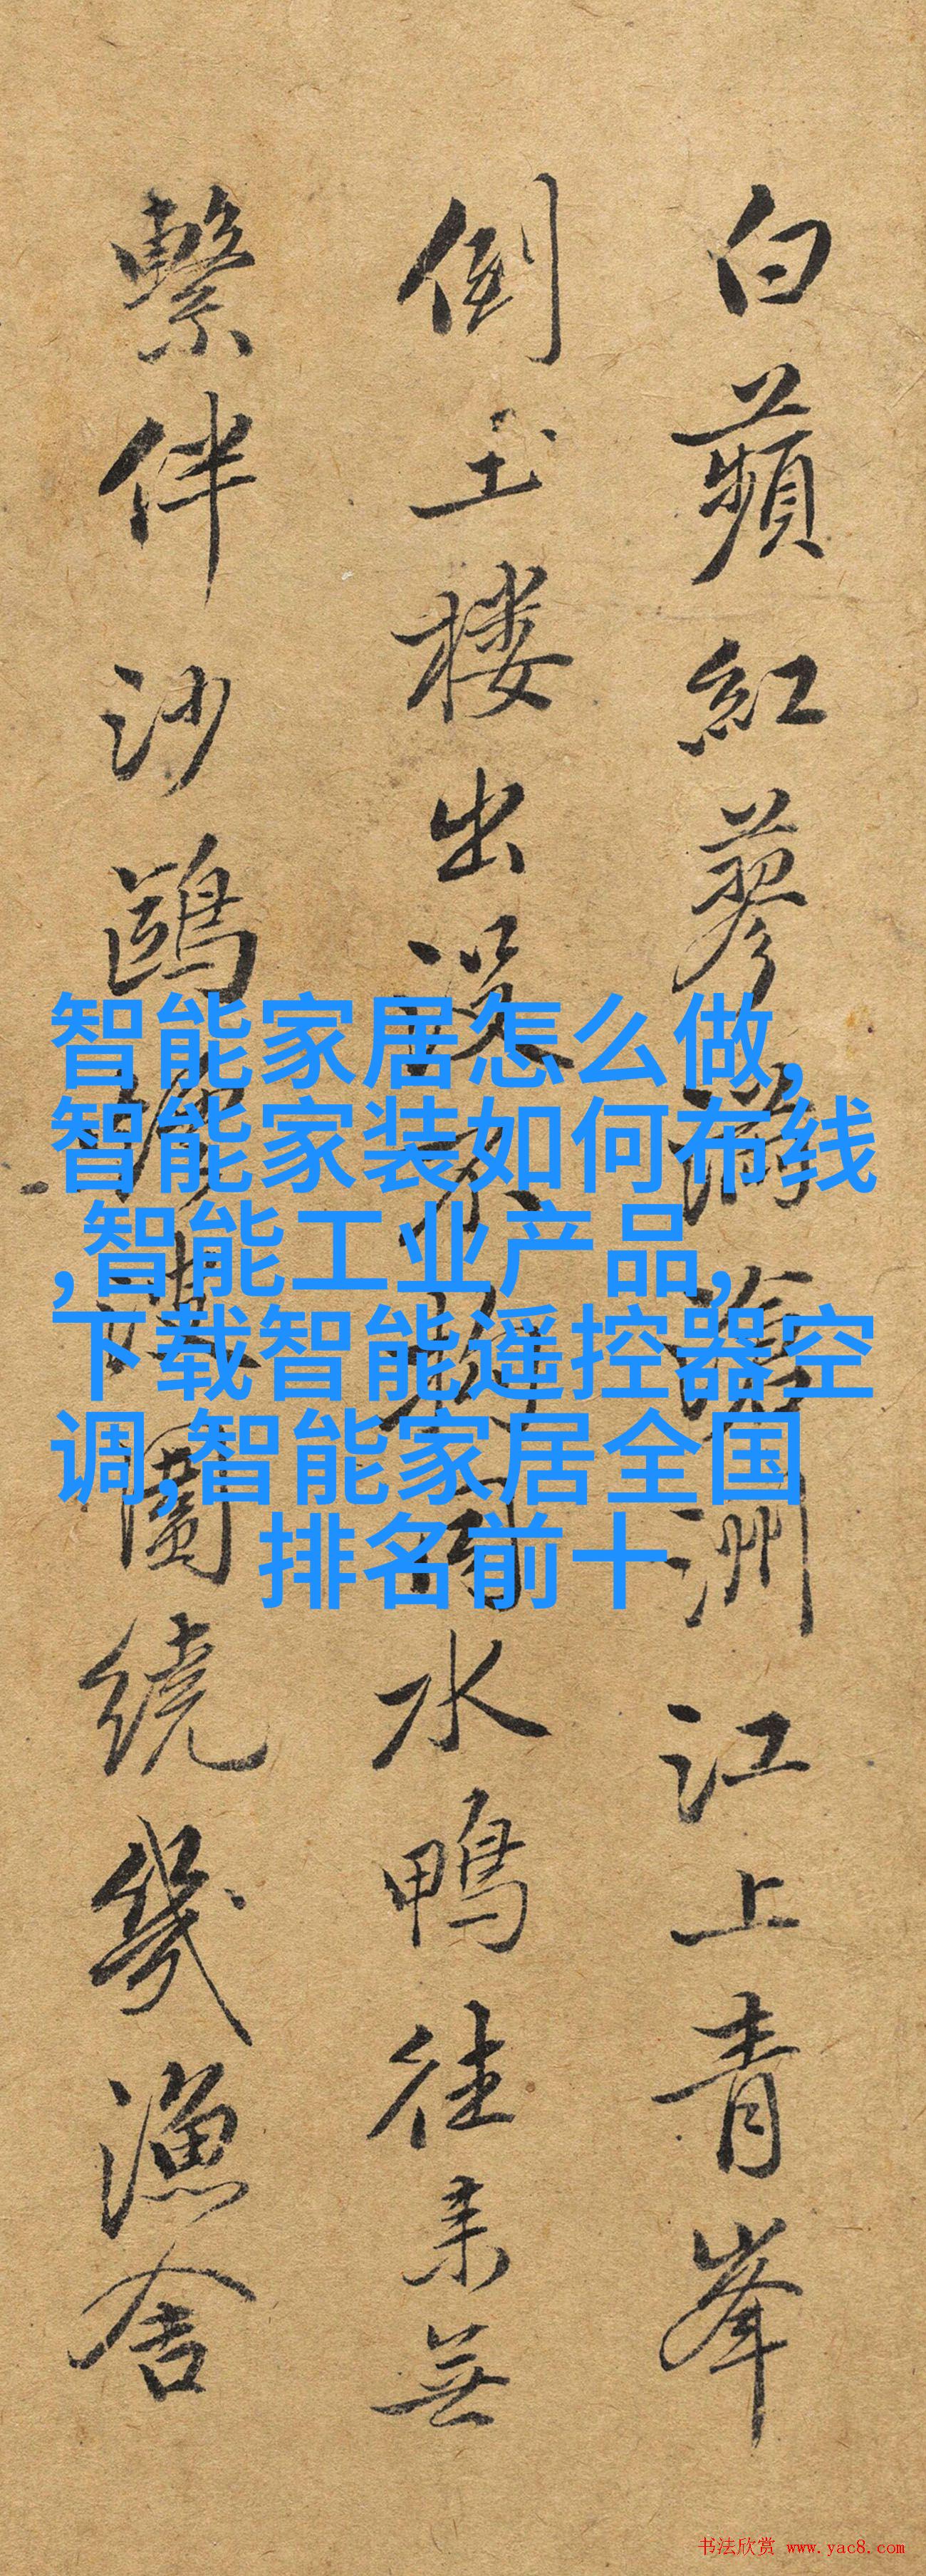 白蘋紅蓼洲江上青峯
倒玉楼出没不水鴨往来無
繫伴沙鷗繞幾漁舍
智能家居怎么做,
智能家装如何布线
,智能工业产品,
下载智能遥控器空
调,智能家居全国
排名前十
书法欣赏 www.yac8.com